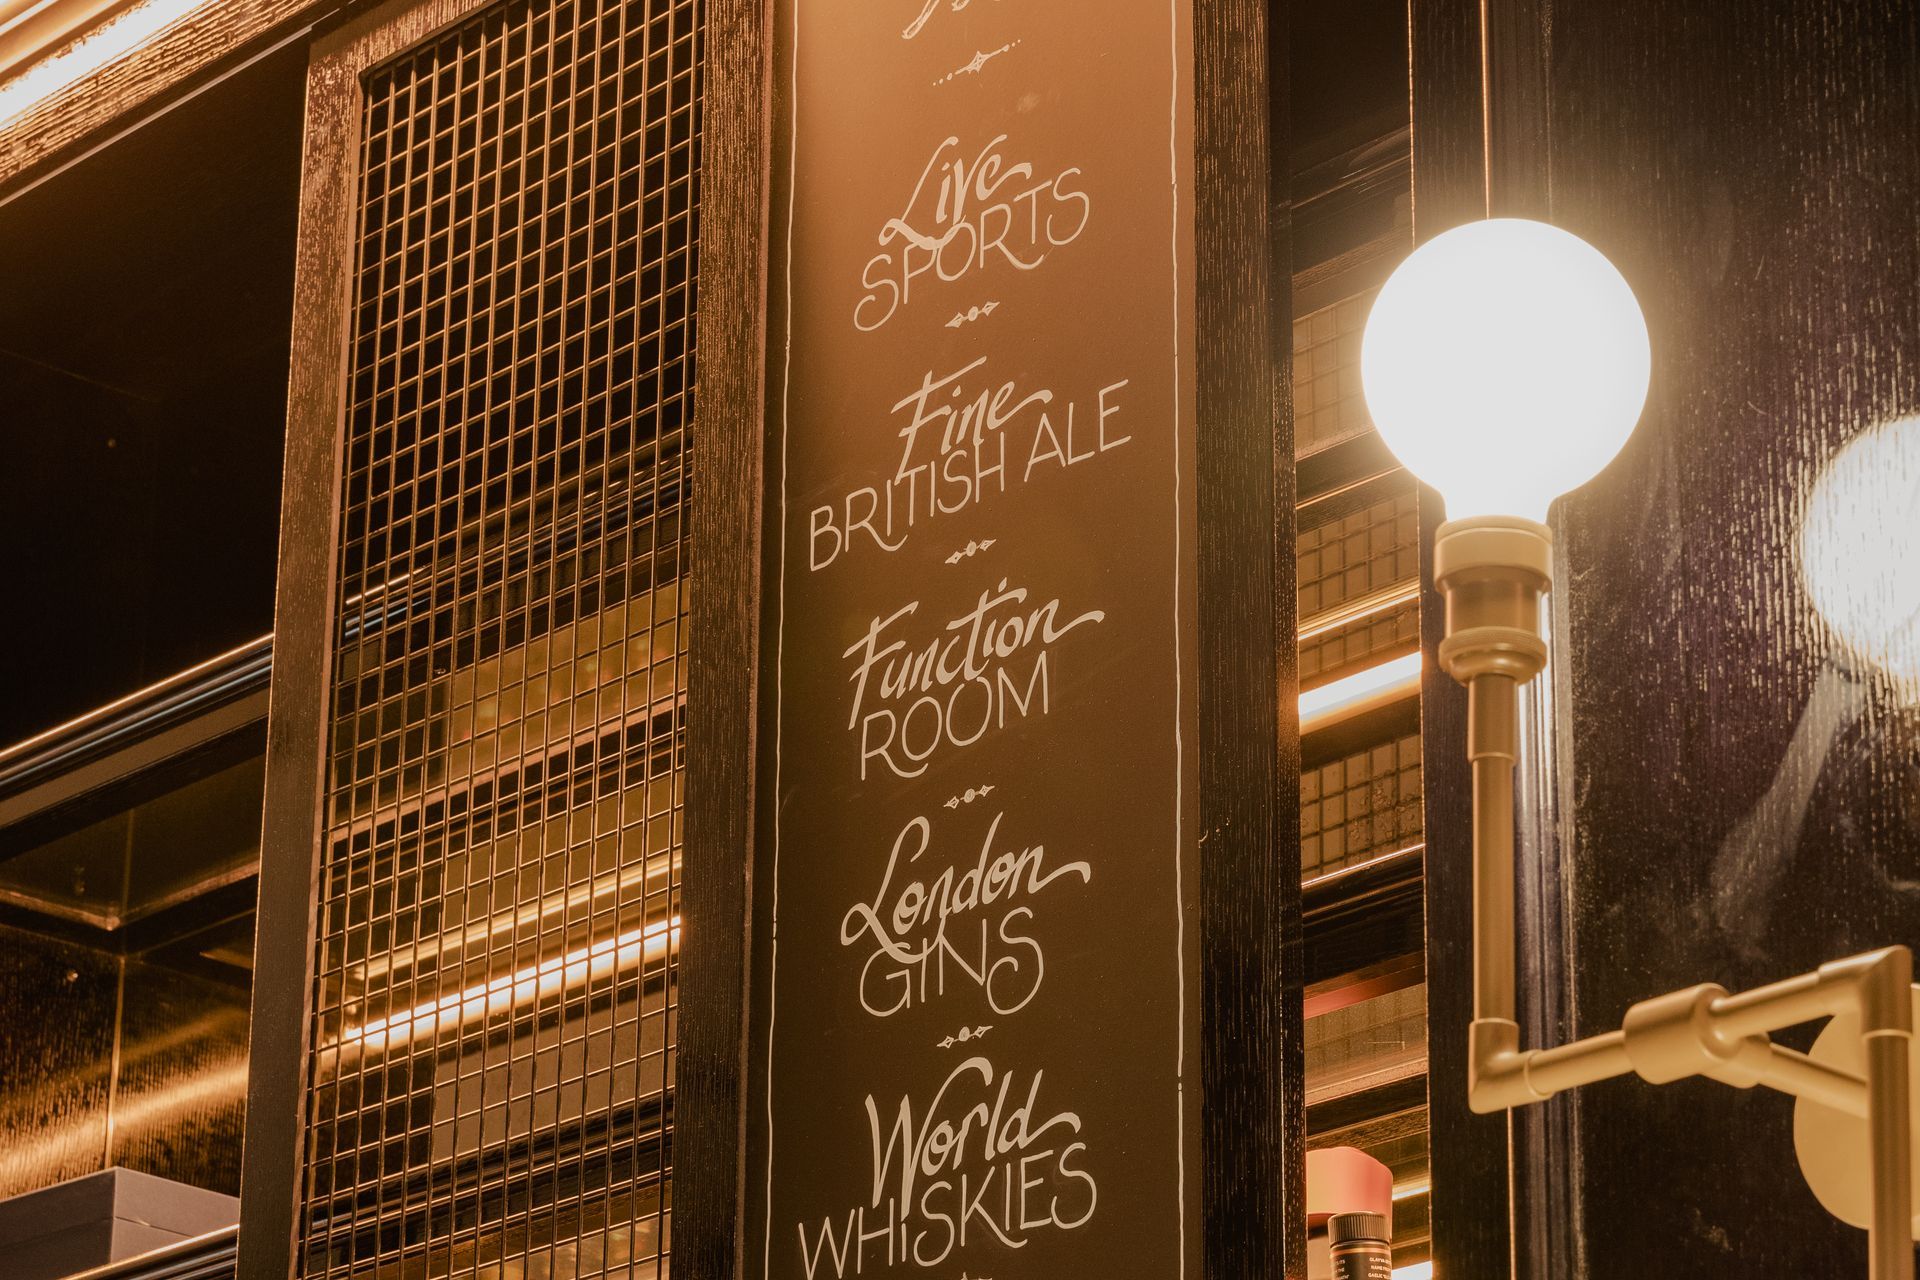 Live
SPORTS
Fine
BRITISH ALE
Function
ROOM
London
GINS
World
WHiSKIES